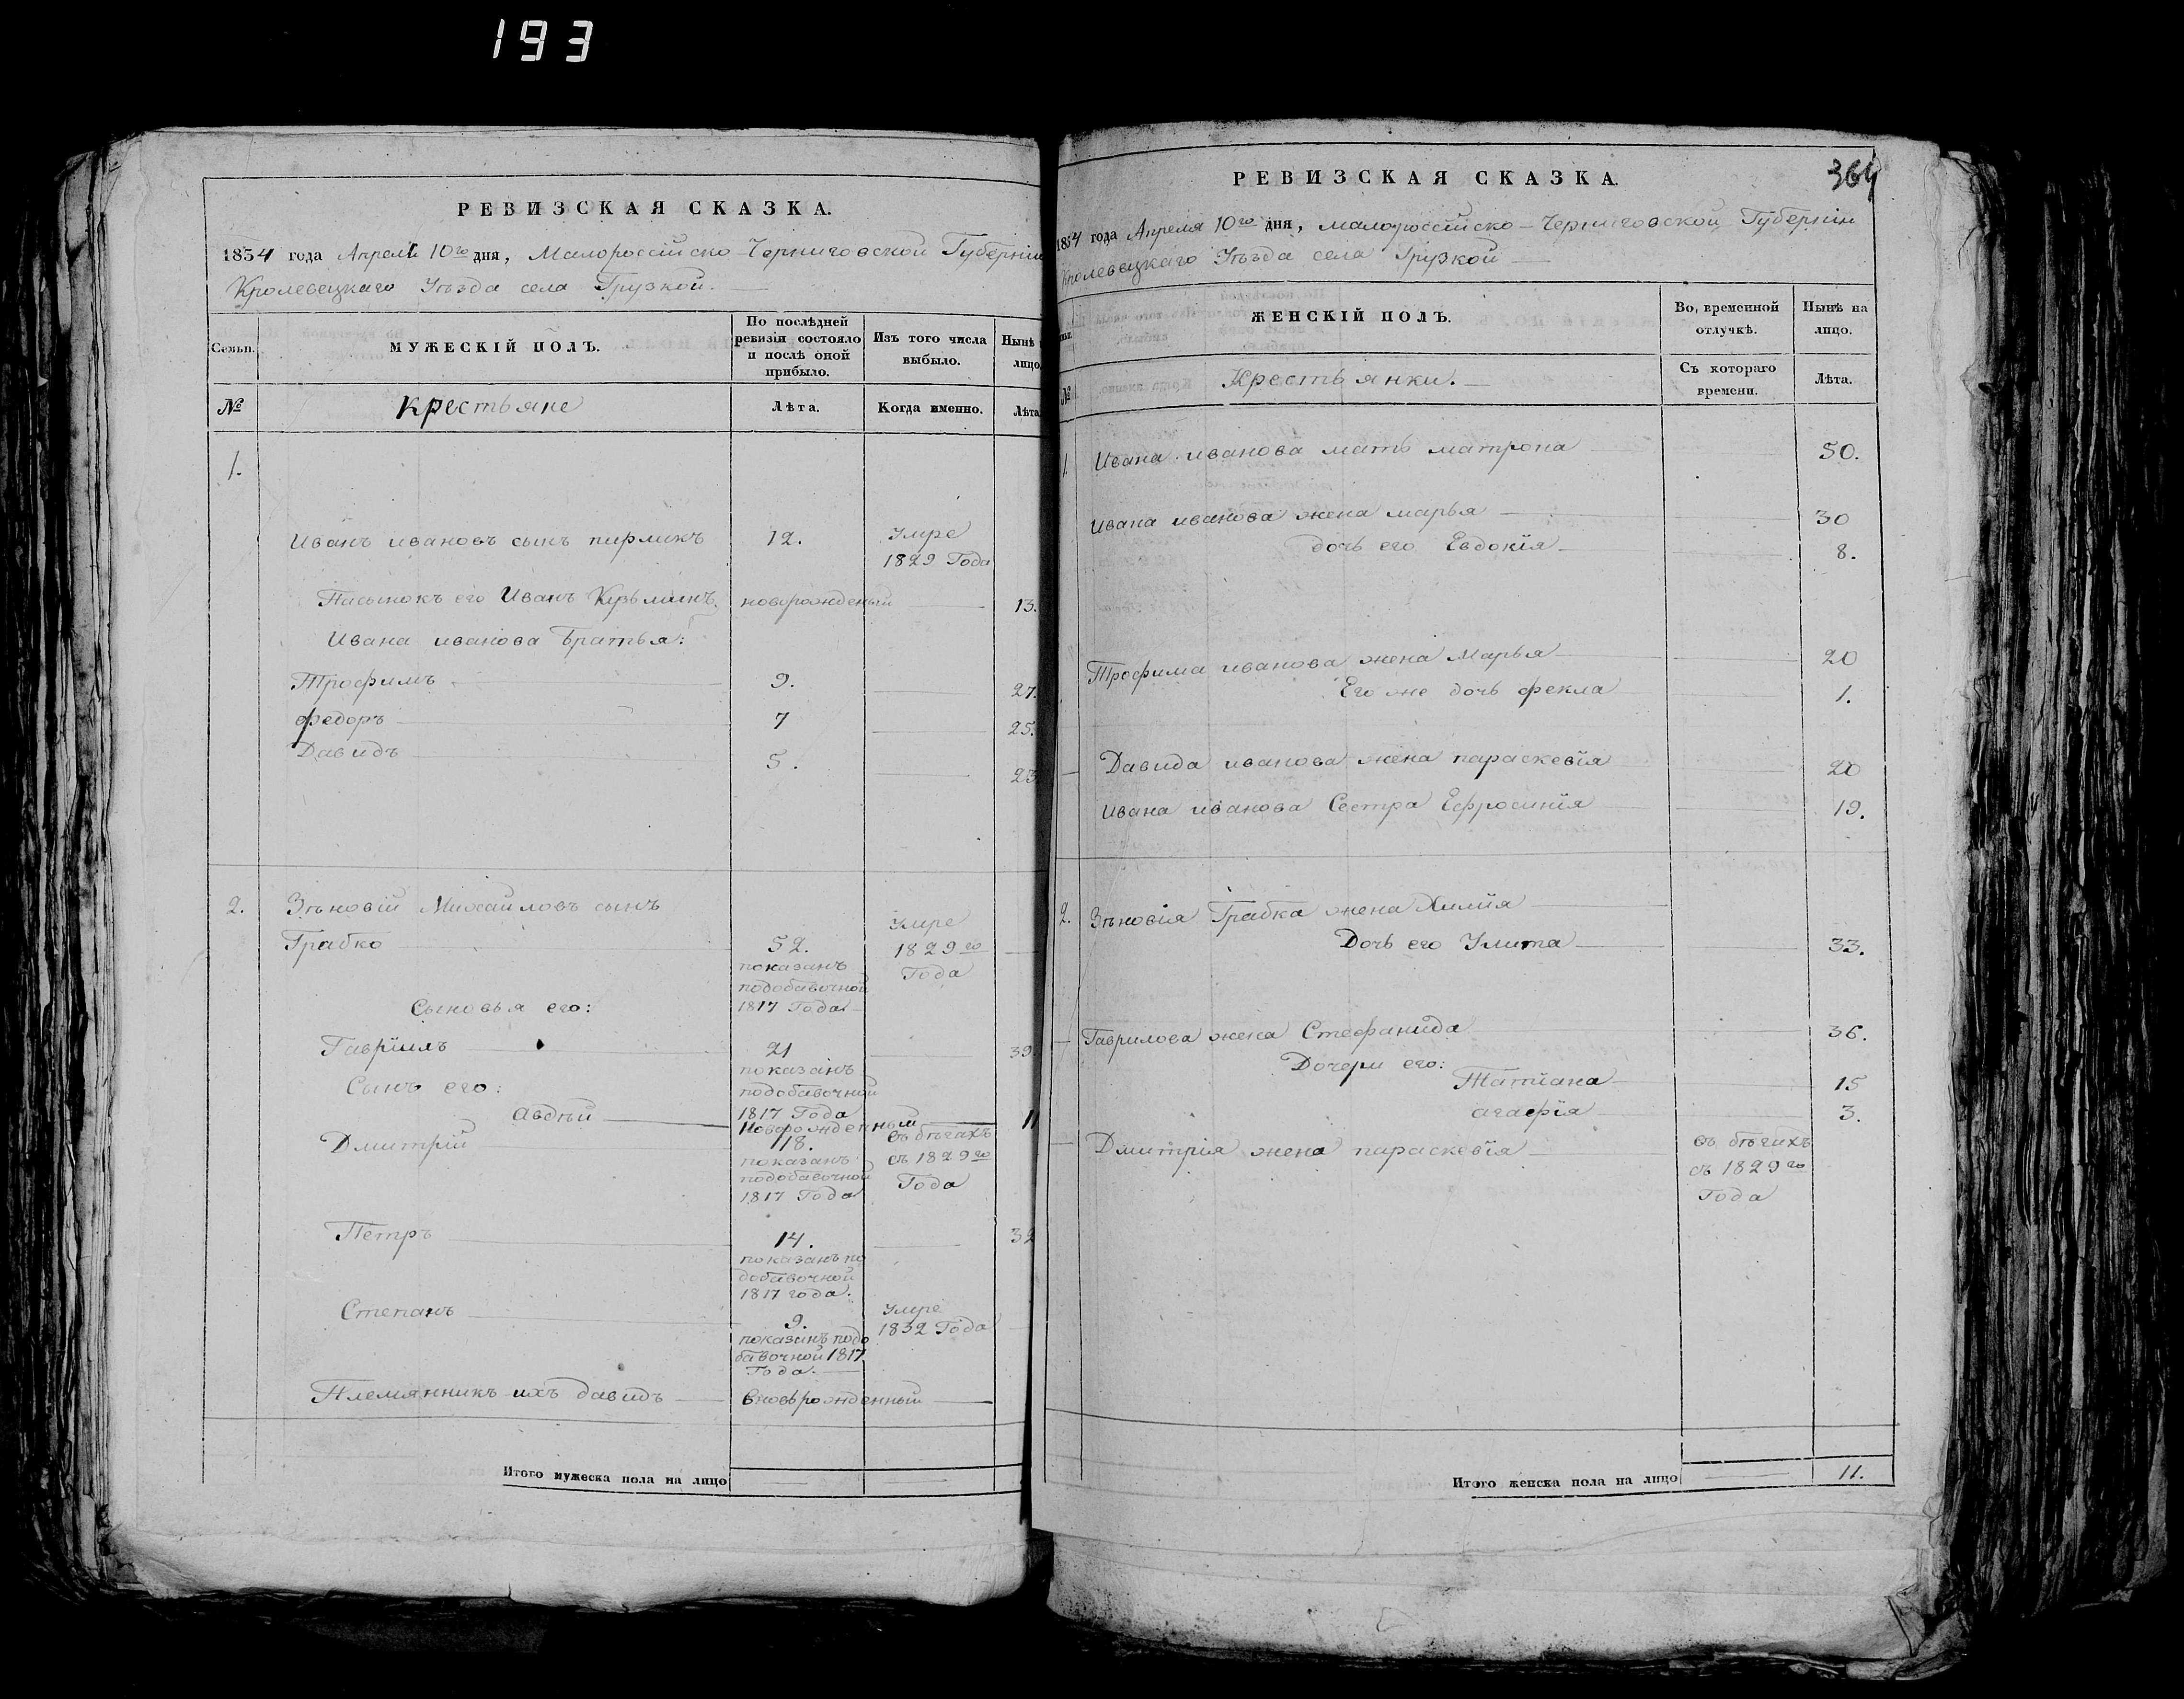 193
РЕВИЗСКАЯ СКАЗКА.
1834 года Апреля 10го дня, Малороссійско-Черниговской Губерніи
Кролевецкаго Уѣзда села Грузкой.
Семьи.
МУЖЕСКІЙ ПОЛЪ.
По послѣдней
ревизіи состояло
и послѣ оной
прибыло.
Изъ того числа
выбыло.
Нынѣ
лицо
№
Крестьяне
Лѣта.
Когда именно.
Лѣта
1.
Иванъ ивановъ сынъ пирликъ 12. Умре
1829 Года
Пасынокъ его Иванъ Кузьминъ новорожденый 13.
Ивана иванова братья:
Трофимъ 9. 27.
федоръ 7 25.
Давидъ 5. 23
2. Зѣновій Михайловъ сынъ
Грабко 52. Умре 1829го Года
показанъ
подобавочной
1817 Года
Сыновья его:
Гавріилъ 21 39.
показанъ
подобавочной
1817 Года
Сынъ его:
Авдѣй Новорожденный 11
Дмитрій 18. въ бѣгахъ
показанъ съ 1829го
подобавочной Года
1817 Года
Петръ 14. 32
показанъ по
добавочной
1817 года.
Степанъ 9. Умре
1832 Года
показанъ подо
бавочной 1817
Года.
Племянникъ ихъ давидъ вновьрожденный
Итого мужеска пола на лицо
364
РЕВИЗСКАЯ СКАЗКА.
1834 года Апреля 10го дня, малороссійско-Черниговской Губерніи
Кролевецкаго Уѣзда села Грузкой
ЖЕНСКІЙ ПОЛЪ.
Во, временной
отлучкѣ.
Нынѣ на
лицо.
№
Крестьянки.
Съ котораго
времени.
Лѣта.
1. Ивана иванова мать матрона 50.
Ивана иванова жена марья 30
дочь его Евдокія 8.
Трофима иванова жена Марья 20
Его же дочь фекла 1.
Давида иванова жена параскевія 20
Ивана иванова Сестра Ефросинія 19.
2. Зѣновія Грабка жена
Дочь его Улита 33.
Гаврилова жена Стефанида 36.
Дочери его:
Татіана 15
агафія 3.
Дмитрія жена параскевія въ бѣгахъ
съ 1829го
Года
Итого женска пола на лицо 11.